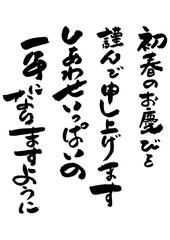 初春のお慶びを
謹んで申し上げます
しあわせいっぱいの
一年になりますように